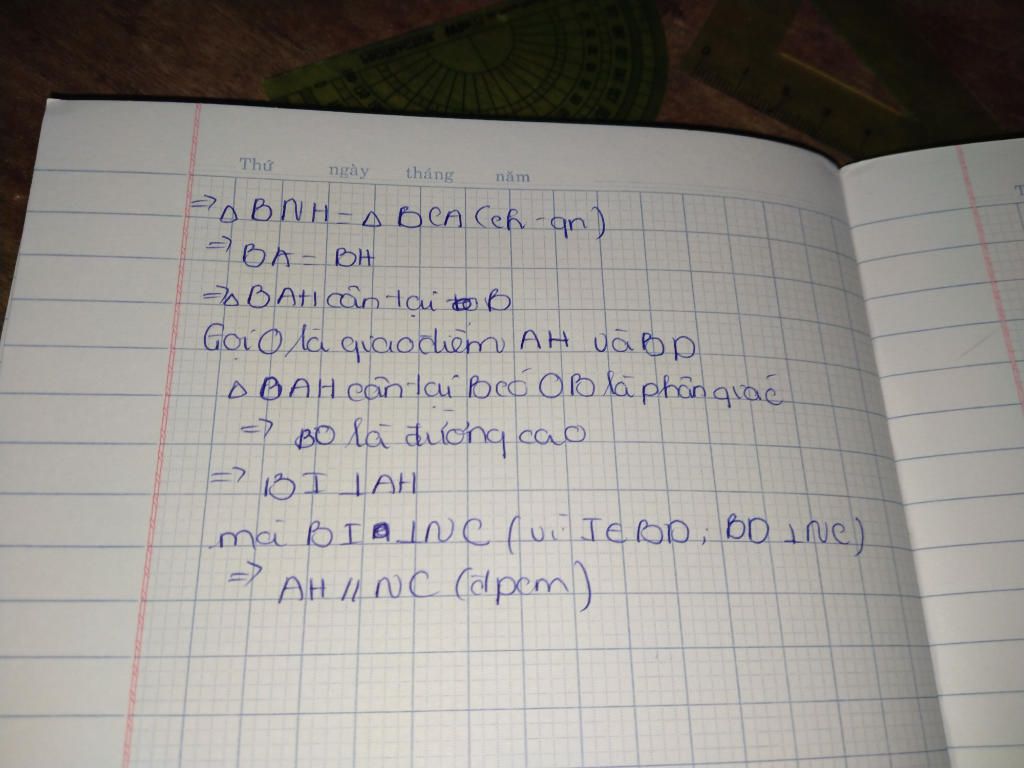 Thứ ngày tháng năm
=> △ BNH = △ BCA (ch - gn)
=> BA = BH
=> △ BAH cân tại B
Gọi O là giao điểm AH và BD
△ BAH cân tại B có OB là phân giác
=> BO là đường cao
=> BI ⊥ AH
mà BI ⊥ NC (vì I ∈ BD ; BD ⊥ NC)
=> AH // NC (đpcm)